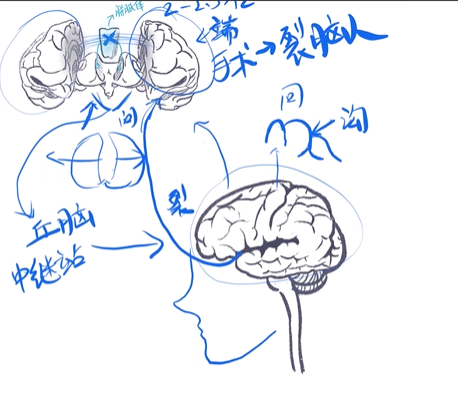 胼胝体
2-2.5亿
端
手术→裂脑人
间
回
沟
裂
丘脑
中继站